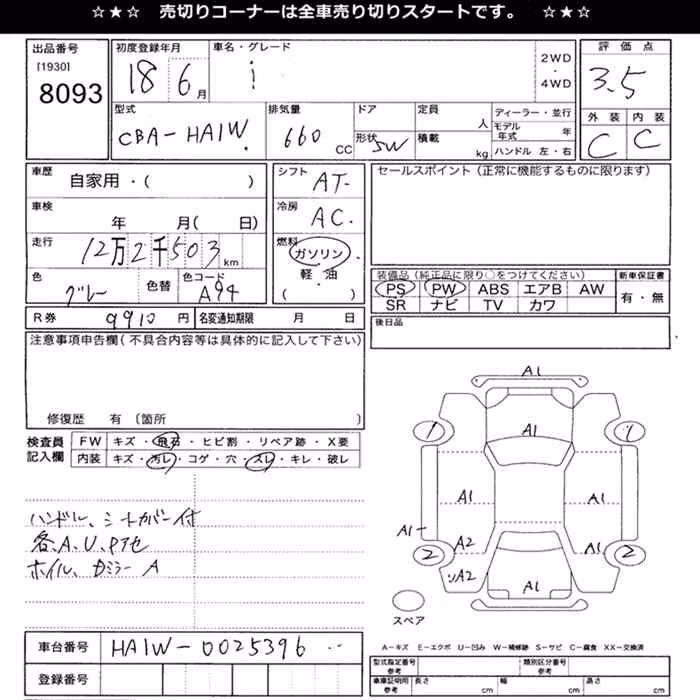 ☆★☆ 売切りコーナーは全車売り切りスタートです。 ☆★☆
出品番号
[1930]
8093
初度登録年月
18 6月
車名・グレード
i
2WD
・
4WD
評価点
3.5
外装 内装
C C
型式
CBA-HA1W
排気量
660 CC
ドア
形状 SW
定員
人
積載
kg
ディーラー・並行
モデル年式 年
ハンドル 左・右
車歴
自家用・( )
車検
年 月( 日)
走行
12万2千503km
色
グレー
色替
色コード
A94
シフト
AT
冷房
AC
燃料
ガソリン
軽・油
( )
セールスポイント(正常に機能するものに限ります)
装備品(純正品に限り○をつけてください)
PS PW ABS エアB AW
SR ナビ TV カワ
新車保証書
有・無
R券 9910円
名変通知期限 月 日
後日品
注意事項申告欄(不具合内容等は具体的に記入して下さい)
修復歴 有 (箇所 )
検査員
記入欄
FW キズ・飛石・ヒビ割・リペア跡・X要
内装 キズ・汚レ・コゲ・穴・スレ・キレ・破レ
ハンドル、シートカバー付
各、A、U、Pアセ
ホイル、Dミラー A
A1
1
A1
1
A1
A1
A1-
2
A2
A1
2
ソA2
A1
スペア
車台番号 HA1W-0025396
登録番号
A-キズ E-エクボ U-凹み W-補修跡 S-サビ C-腐食 XX-交換済
型式指定番号
参考
類別区分番号
参考
車庫証明用
参考
長さ cm
幅 cm
高さ cm